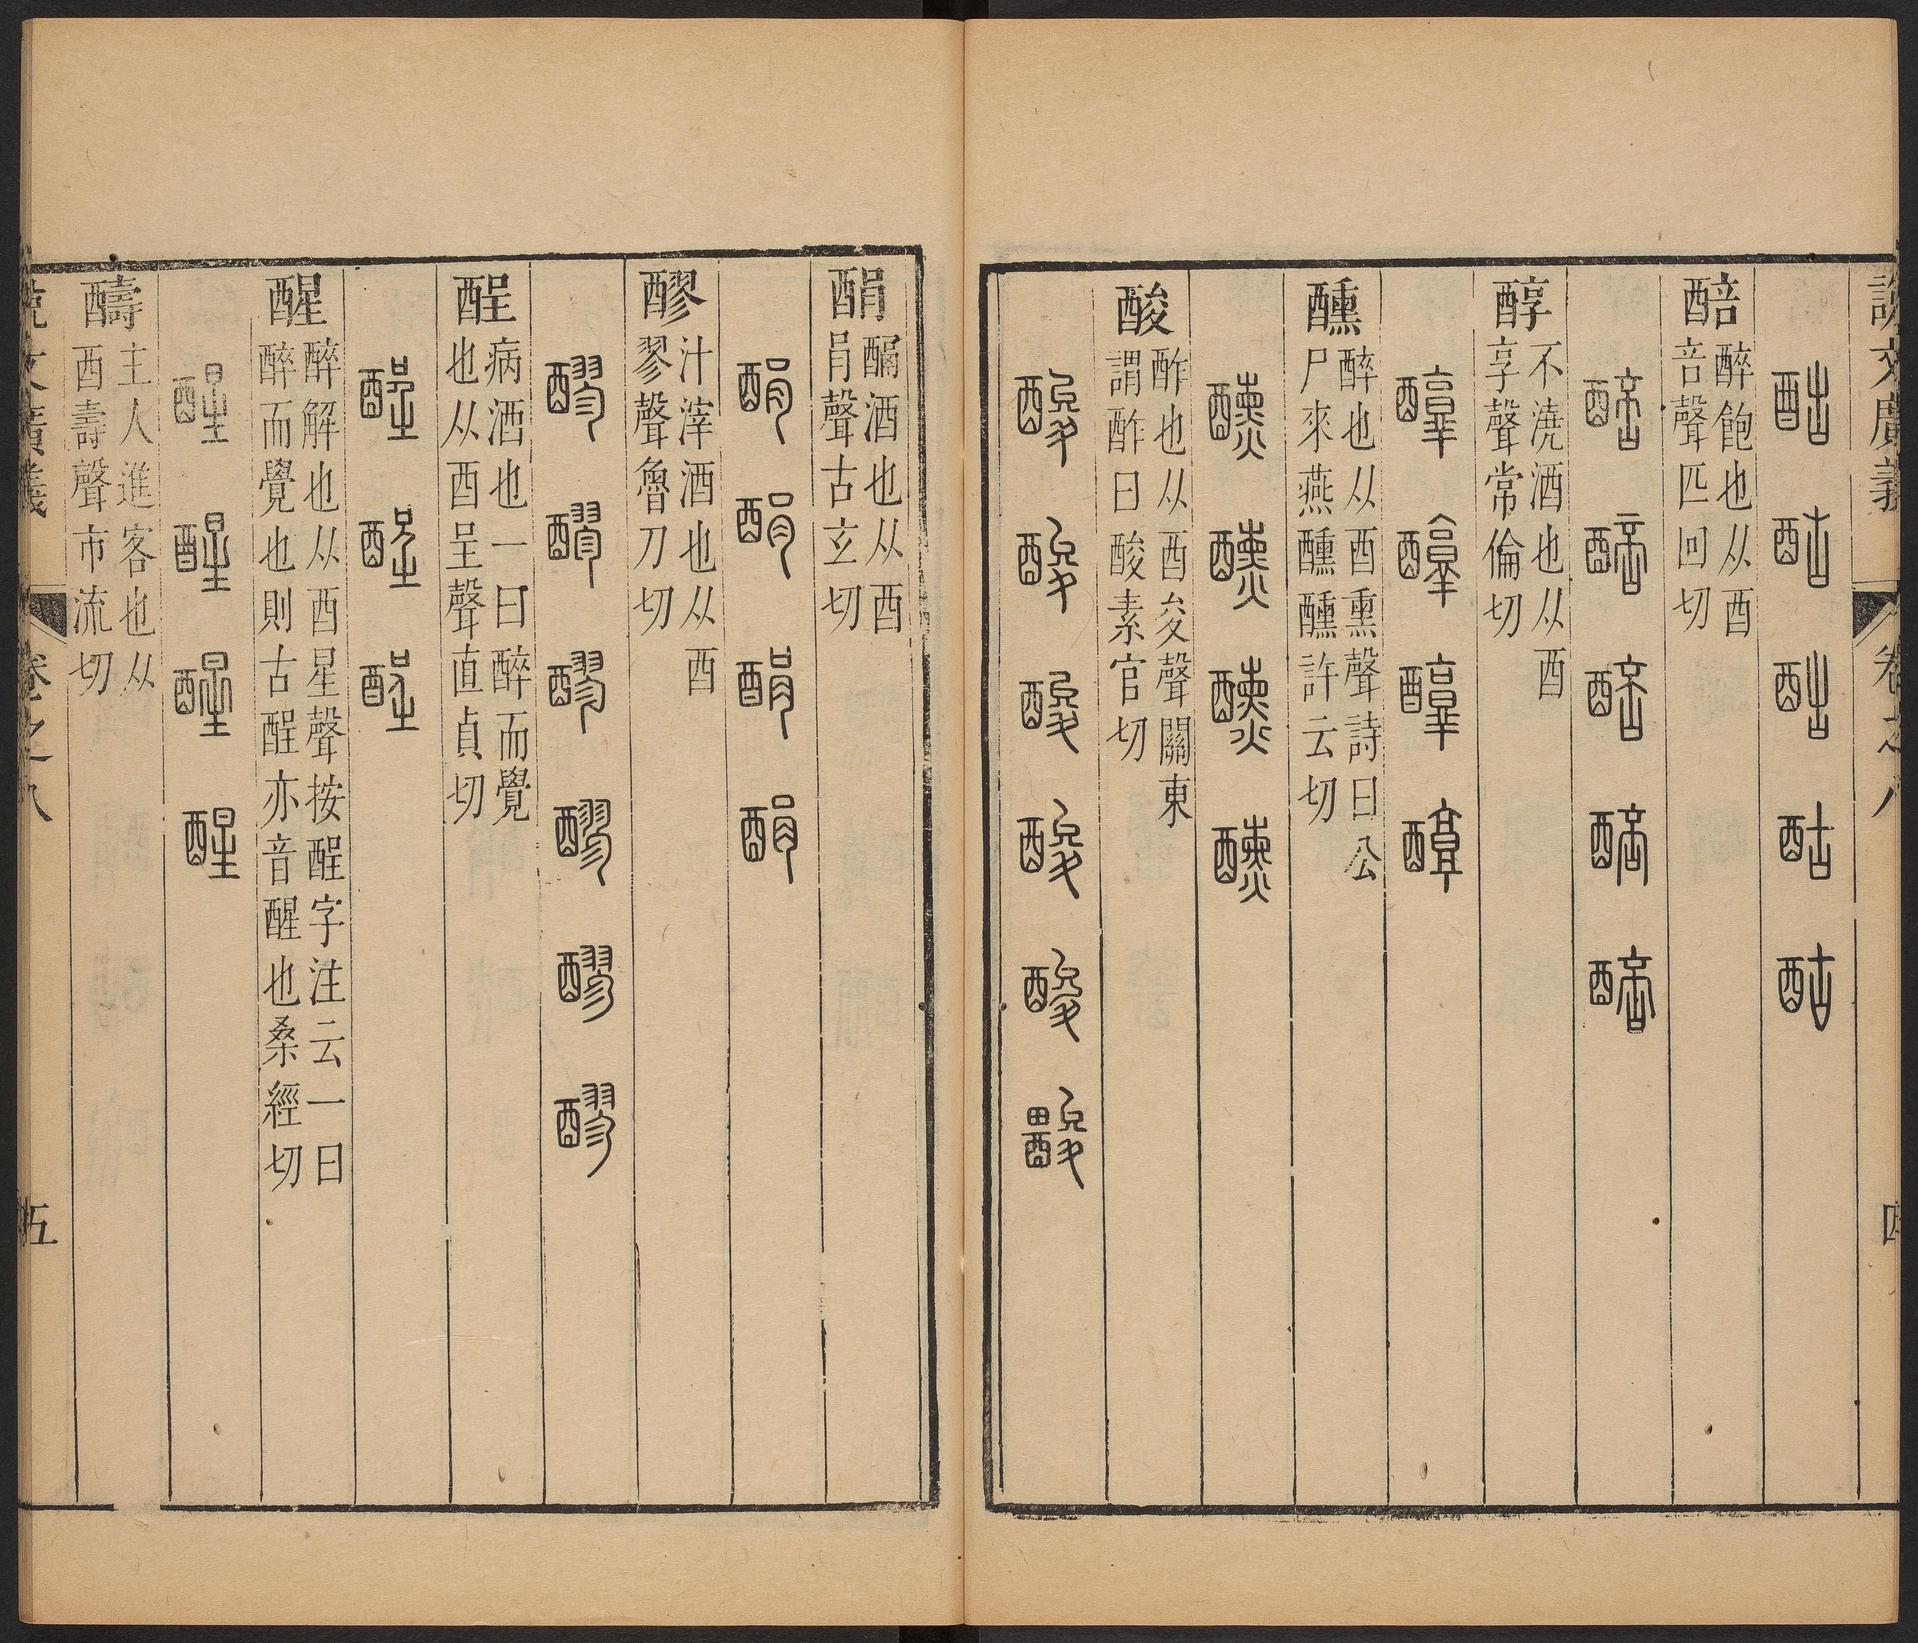 說文廣義
卷之八
四
酟 酟 酟 酟 酟
醅 醉飽也从酉
咅聲匹回切
醅 醅 醅 醅 醅
醇 不澆酒也从酉
享聲常倫切
醇 醇 醇 醇
醺 醉也从酉熏聲詩曰公
尸來燕醺醺許云切
醺 醺 醺 醺
酸 酢也从酉夋聲關東
謂酢曰酸素官切
酸 酸 酸 酸 酸 酸
酳 酳酒也从酉
肙聲古玄切
醪 汁滓酒也从酉
翏聲魯刀切
醪 醪 醪 醪 醪 醪
酲 病酒也一曰醉而覺
也从酉呈聲直貞切
酲 酲 酲
醒 醉解也从酉星聲按酲字注云一曰
醉而覺也則古酲亦音醒也桑經切
醒 醒 醒 醒
醻 主人進客也从
酉壽聲市流切
說文廣義
卷之八
五